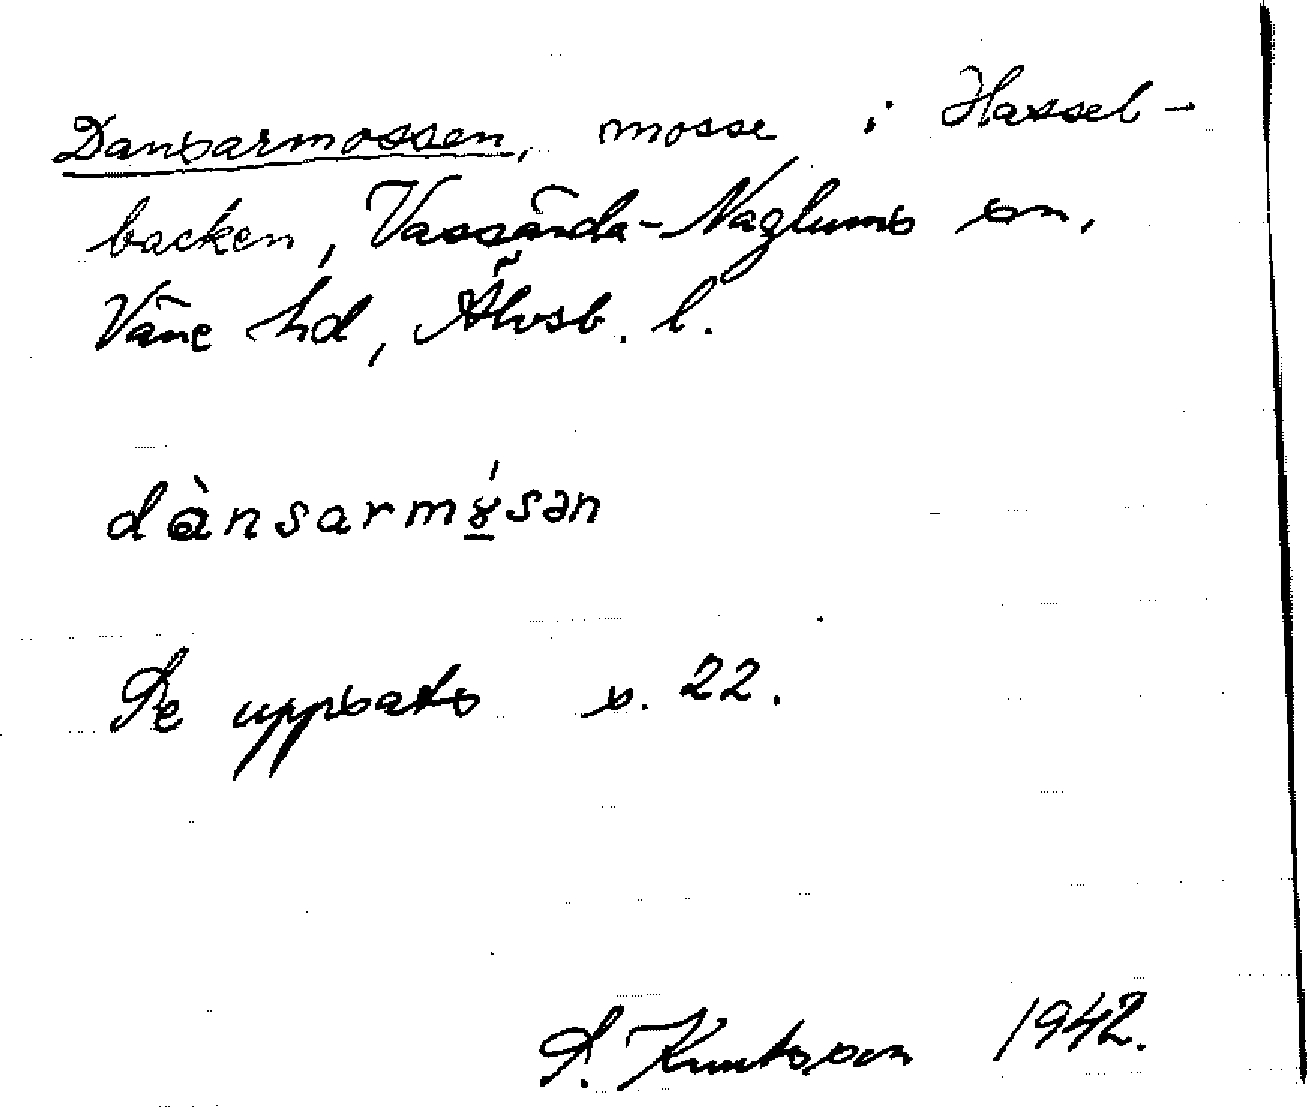 Dansarmossen, mosse i Hassel-
backen, Vassända-Naglums sn,
Väne hd, Älvsb. l.
dànsarmɤ̠́sən
Se uppsats s. 22.
S. Knutsson 1942.